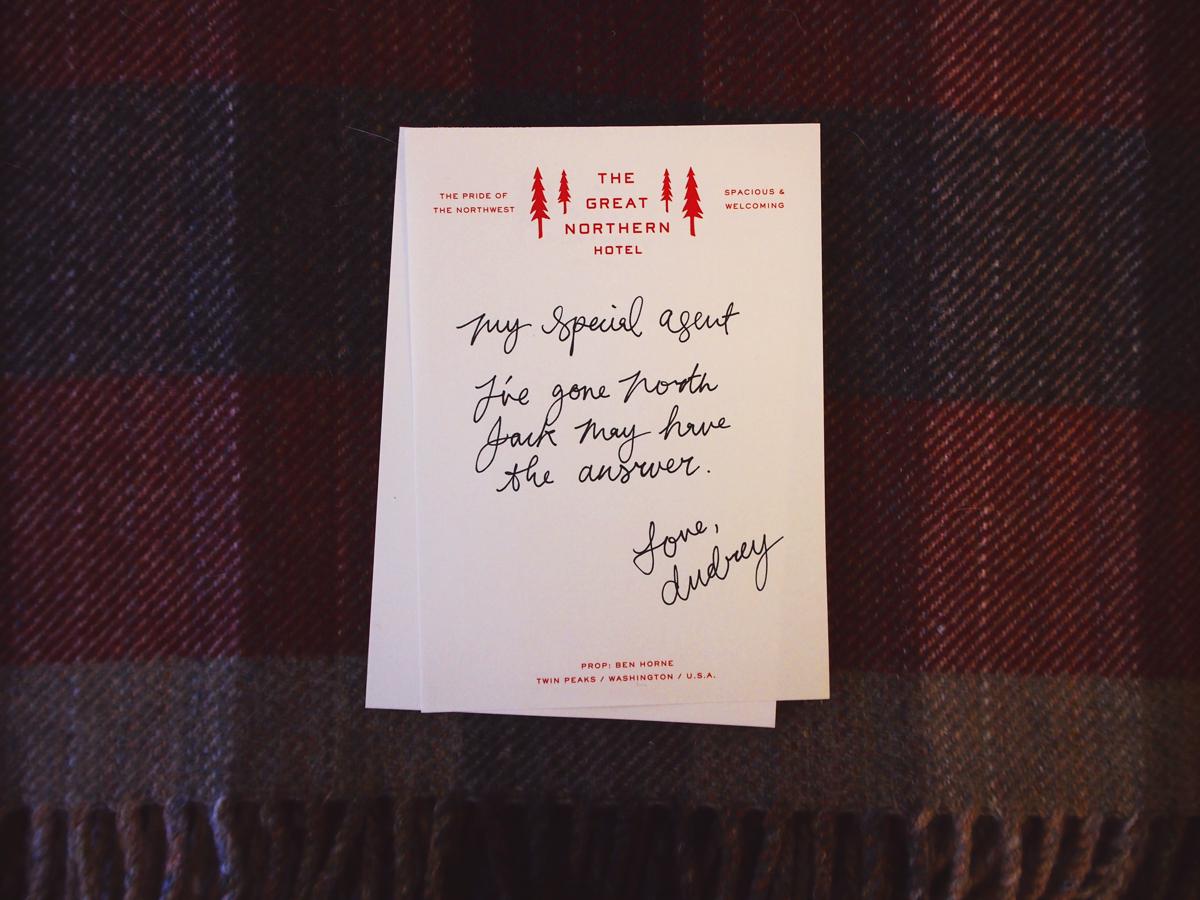 THE PRIDE OF
THE NORTHWEST
THE
GREAT
NORTHERN
HOTEL
SPACIOUS &
WELCOMING
My Special Agent
I've gone North
Jack May have
the answer.
Love,
Audrey
PROP: BEN HORNE
TWIN PEAKS / WASHINGTON / U.S.A.